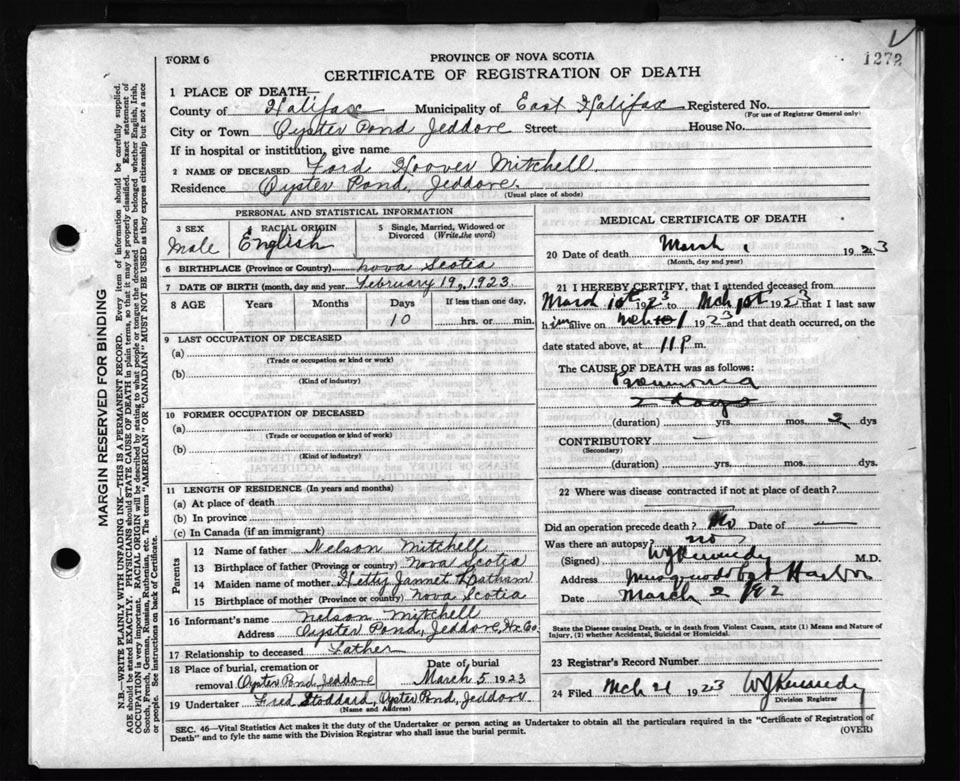 1272
FORM 6
PROVINCE OF NOVA SCOTIA
CERTIFICATE OF REGISTRATION OF DEATH
1 PLACE OF DEATH—
County of Halifax Municipality of East Halifax Registered No.
(For use of Registrar General only)
City or Town Oyster Pond Jeddore Street House No.
If in hospital or institution, give name
2 NAME OF DECEASED Ford Hoover Mitchell
Residence Oyster Pond, Jeddore.
(Usual place of abode)
PERSONAL AND STATISTICAL INFORMATION
3 SEX
Male
4 RACIAL ORIGIN
English
5 Single, Married, Widowed or Divorced (Write the word)
6 BIRTHPLACE (Province or Country) Nova Scotia
7 DATE OF BIRTH (month, day and year) February 19, 1923.
8 AGE Years Months Days If less than one day,
10 hrs. or min.
9 LAST OCCUPATION OF DECEASED
(a)
(Trade or occupation or kind or work)
(b)
(Kind of industry)
10 FORMER OCCUPATION OF DECEASED
(a)
(Trade or occupation or kind of work)
(b)
(Kind of industry)
11 LENGTH OF RESIDENCE (In years and months)
(a) At place of death
(b) In province
(c) In Canada (if an immigrant)
Parents
12 Name of father Nelson Mitchell
13 Birthplace of father (Province or country) Nova Scotia
14 Maiden name of mother Hetty Jannet
15 Birthplace of mother (Province or country) Nova Scotia
16 Informant's name Nelson Mitchell
Address Oyster Pond, Jeddore, Hx Co.
17 Relationship to deceased Father
18 Place of burial, cremation or removal Oyster Pond Jeddore
Date of burial
March 5, 1923
19 Undertaker Fred Stoddard, Oyster Pond, Jeddore
(Name and Address)
MEDICAL CERTIFICATE OF DEATH
20 Date of death March 1 1923
(Month, day and year)
21 I HEREBY CERTIFY, that I attended deceased from
March 1st 1923 to Mch 1st 1923 that I last saw
him alive on Mch 1 1923 and that death occurred, on the
date stated above, at 11 P m.
The CAUSE OF DEATH was as follows:
Pneumonia
2 days
(duration) yrs. mos. 2 dys
CONTRIBUTORY —
(Secondary)
(duration) yrs. mos. dys.
22 Where was disease contracted if not at place of death?
Did an operation precede death? No Date of —
Was there an autopsy? no
(Signed) WJ Kennedy M.D.
Address Musquodoboit Harbor
Date March 2 192
State the Disease causing Death, or in death from Violent Causes, state (1) Means and Nature of Injury, (2) whether Accidental, Suicidal or Homicidal.
23 Registrar's Record Number
24 Filed Mch 21 1923 WJ Kennedy
Division Registrar
SEC. 46—Vital Statistics Act makes it the duty of the Undertaker or person acting as Undertaker to obtain all the particulars required in the "Certificate of Registration of
Death" and to fyle the same with the Division Registrar who shall issue the burial permit.
(OVER)
MARGIN RESERVED FOR BINDING
N.B.—WRITE PLAINLY WITH UNFADING INK—THIS IS A PERMANENT RECORD. Every item of information should be carefully supplied.
AGE should be stated EXACTLY. PHYSICIANS should STATE CAUSE OF DEATH in plain terms, so that it may be properly classified. Exact statement of
OCCUPATION is very important. RACIAL ORIGIN will be described by stating to what people or tongue the deceased person belonged whether English, Irish,
Scotch, French, German, Russian, Ruthenian, etc. The terms "AMERICAN" OR "CANADIAN" MUST NOT BE USED as they express citizenship but not a race
or people. See instructions on back of Certificate.